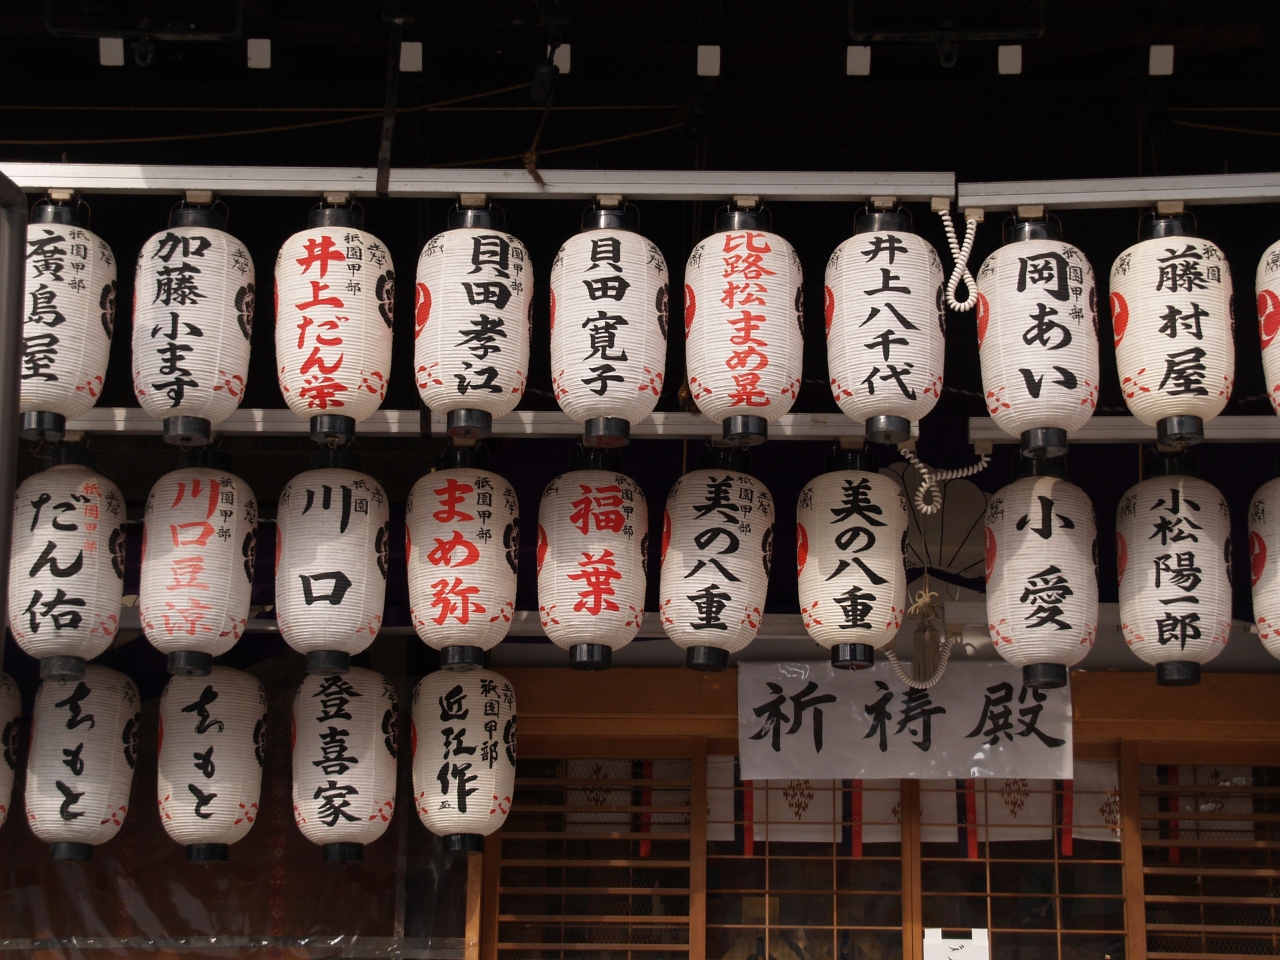 廣島屋
祇園甲部
加藤小ます
井上だん栄
祇園甲部
貝田孝江
祇園甲部
貝田寛子
比路松まめ晃
井上八千代
岡あい
祇園甲部
藤村屋
祇園
だん佑
祇園甲部
川口豆涼
祇園甲部
川口
祇園
まめ弥
祇園甲部
福葉
祇園甲部
美の八重
祇園甲部
美の八重
小愛
小松陽一郎
もと
もと
登喜家
近江作
祇園甲部
祈祷殿
ご